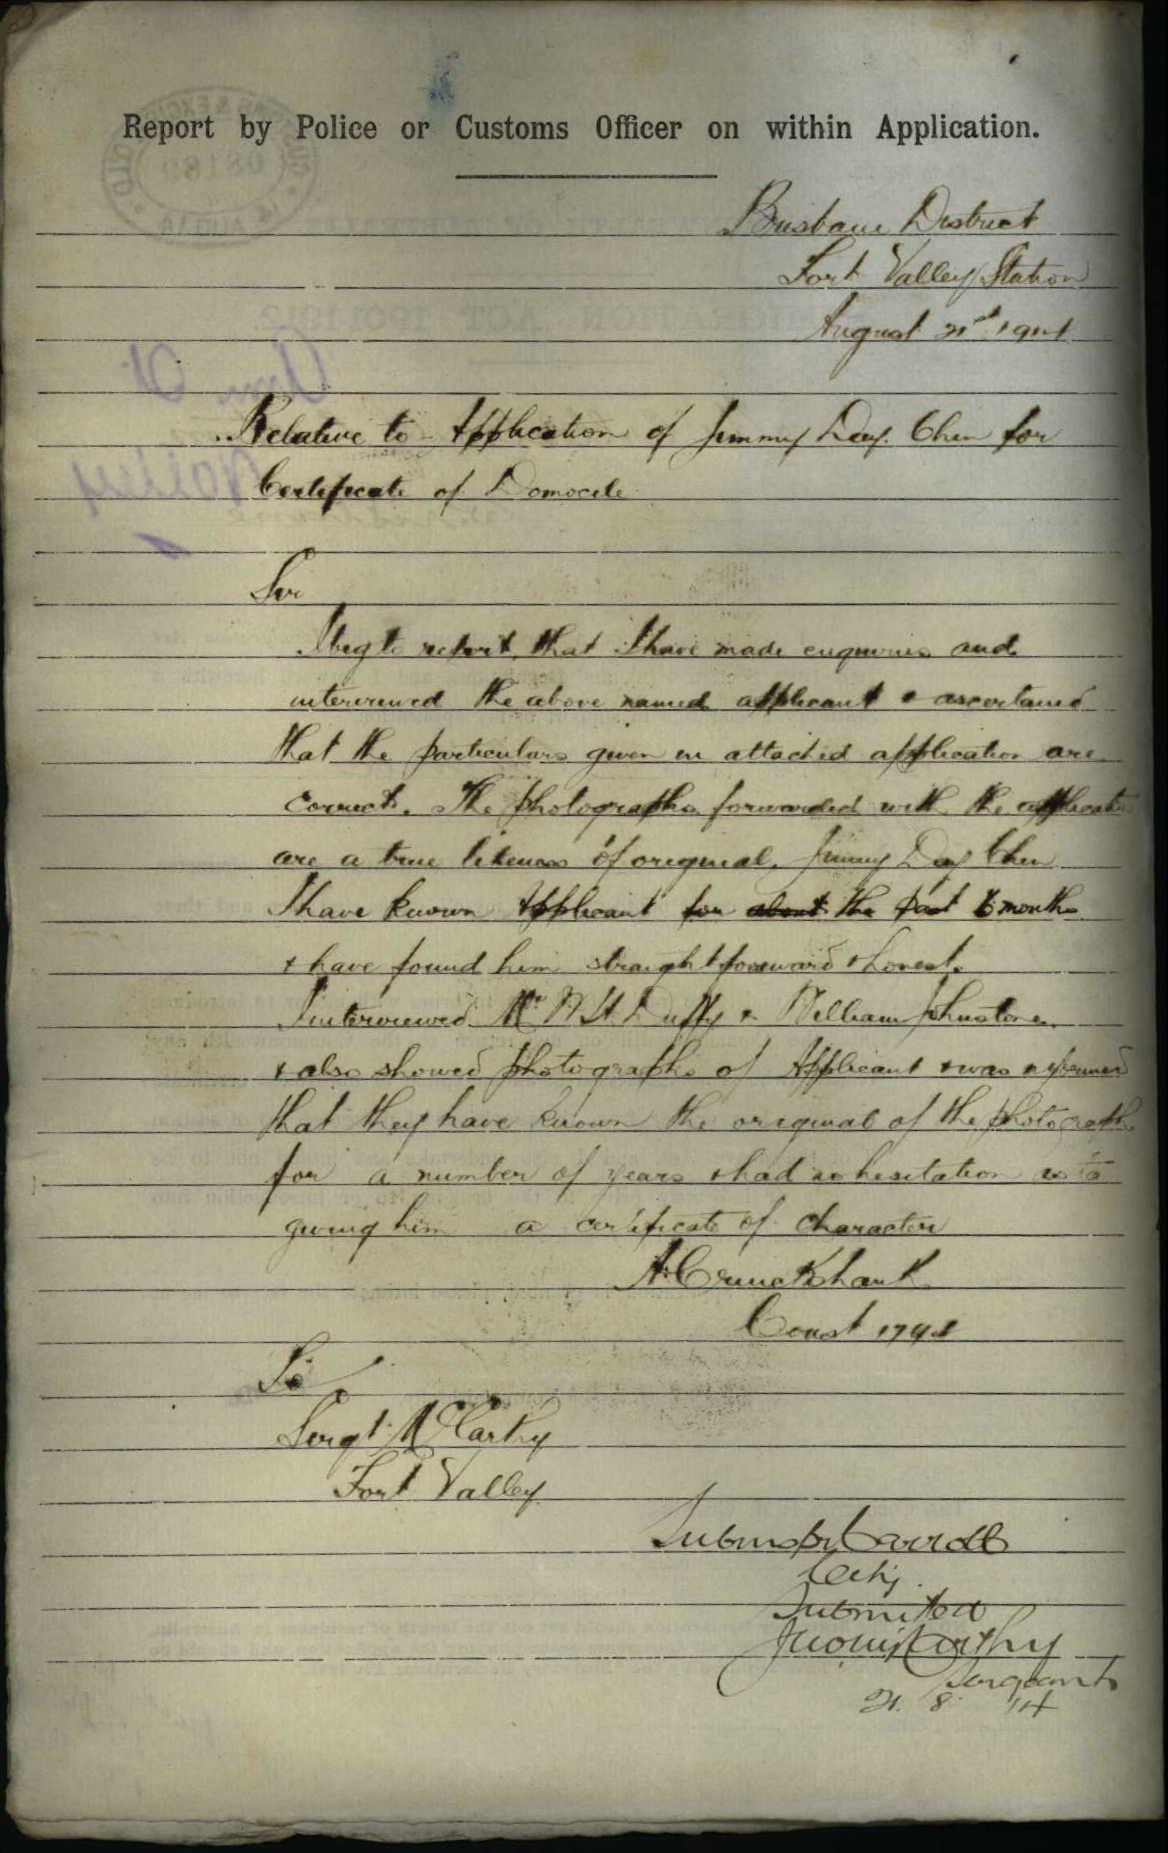 Report by Police or Customs Officer on within Application.
Brisbane District
Fort Valley Station
August 21st 1914
Relative to Application of Jimmy Day Chin for
Certificate of Domocile
Sir
I beg to report that I have made enquiries and
interviewed the above named applicant & ascertained
that the particulars given in attached application are
correct. The photographs forwarded with the
are a true likeness of original. Jimmy Day Chin
I have known Applicant for about the past 6 months
& have found him straightforward & honest.
I interviewed Mr W H Duffy & William Johnstone
& also showed photographs of Applicant & was informed
that they have known the original of the photographs
for a number of years & had no hesitation as to
giving him a certificate of character
A Cruickshank
Const 1794
To
Sergt McCarthy
Fort Valley
Carroll
Submitted
McCarthy
Sergeant
21. 8. 14